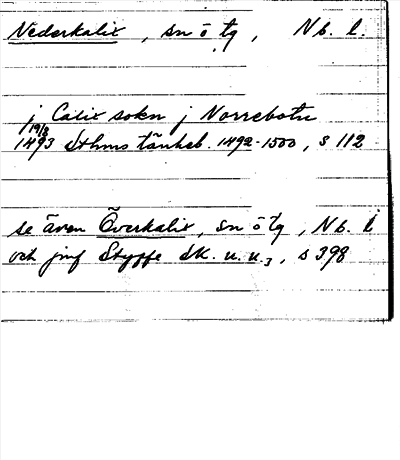 Nederkalix, sn ö tg, Nb. l.
j Calix sokn j Norrebotn
19/8
1493 Sthms tänkeb. 1492-1500, s 112
se även Överkalix, sn ö tg, Nb. l
och jmf Styffe Sk. u. u.3, s 398